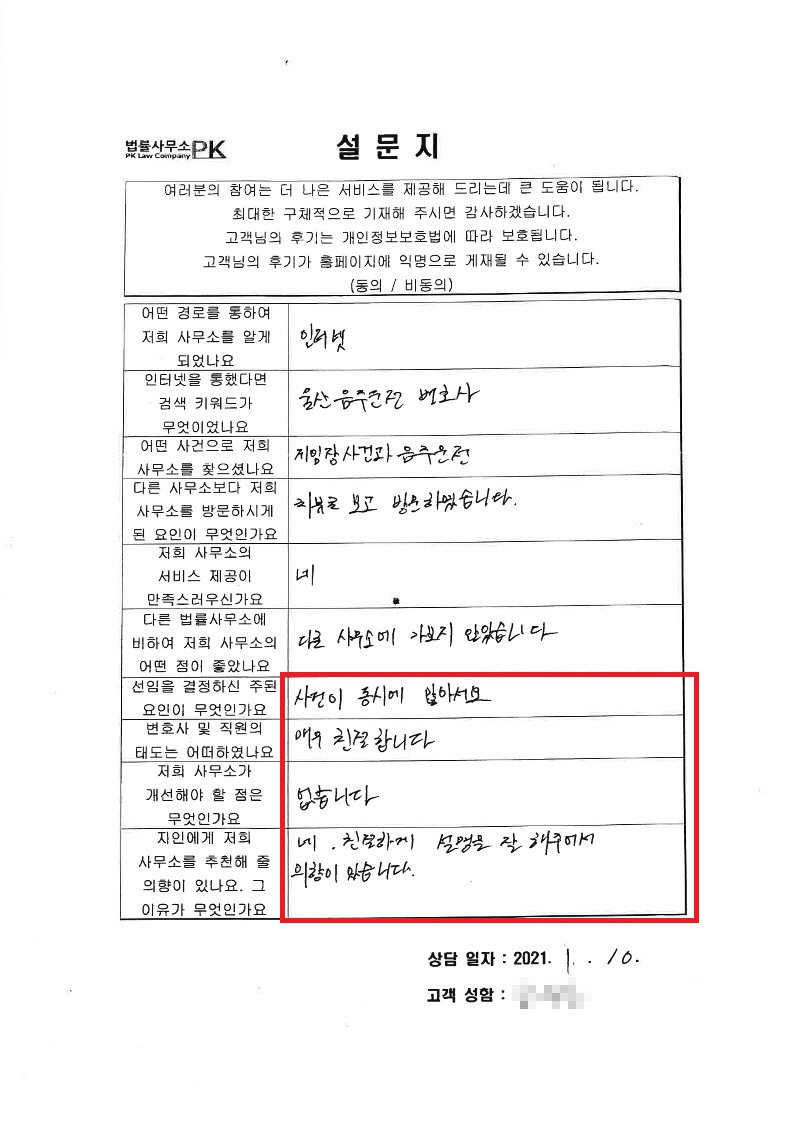 법률사무소 PK
PK Law Company
설문지
여러분의 참여는 더 나은 서비스를 제공해 드리는데 큰 도움이 됩니다.
최대한 구체적으로 기재해 주시면 감사하겠습니다.
고객님의 후기는 개인정보보호법에 따라 보호됩니다.
고객님의 후기가 홈페이지에 익명으로 게재될 수 있습니다.
(동의 / 비동의)
어떤 경로를 통하여
저희 사무소를 알게
되었나요
인터넷
인터넷을 통했다면
검색 키워드가
무엇이었나요
울산 음주운전 변호사
어떤 사건으로 저희
사무소를 찾으셨나요
지임장사건과 음주운전
다른 사무소보다 저희
사무소를 방문하시게
된 요인이 무엇인가요
보고 방문하였습니다.
저희 사무소의
서비스 제공이
만족스러우신가요
네
다른 법률사무소에
비하여 저희 사무소의
어떤 점이 좋았나요
다른 사무소에 가보지 않았습니다
선임을 결정하신 주된
요인이 무엇인가요
사건이 동시에 많아서요
변호사 및 직원의
태도는 어떠하였나요
매우 친절합니다
저희 사무소가
개선해야 할 점은
무엇인가요
없습니다
지인에게 저희
사무소를 추천해 줄
의향이 있나요. 그
이유가 무엇인가요
네. 친절하게 설명을 잘 해주어서
의향이 있습니다.
상담 일자 : 2021. 1. 10.
고객 성함 :